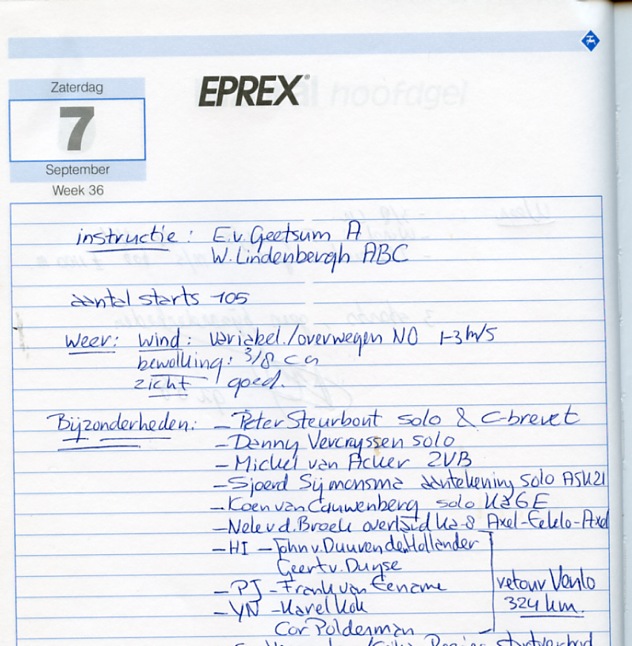 Zaterdag
7
September
Week 36
EPREX
instructie: E.v. Geetsum A
W. Lindenbergh ABC
aantal starts 105
weer: wind: variabel./overwegen NO 1-3 m/s
bewolking: 3/8 cu
zicht goed.
Bijzonderheden: - Peter Steurbout solo & C-brevet
- Danny Vercryssen solo
- Michel van Acker 2VB
- Sjoerd Sijmonsma aantekening solo ASK21
- Koen van Cauwenberg solo Ka6E
- Nele v.d. Broek overland Ka-8 Axel-Eeklo-Axel
- HI - John v. Duuren de Hollander
Geert v. Duyse
- PJ - Frank van Eename
- YN - Karel Kok
Cor Polderman
retour Venlo
324 km.